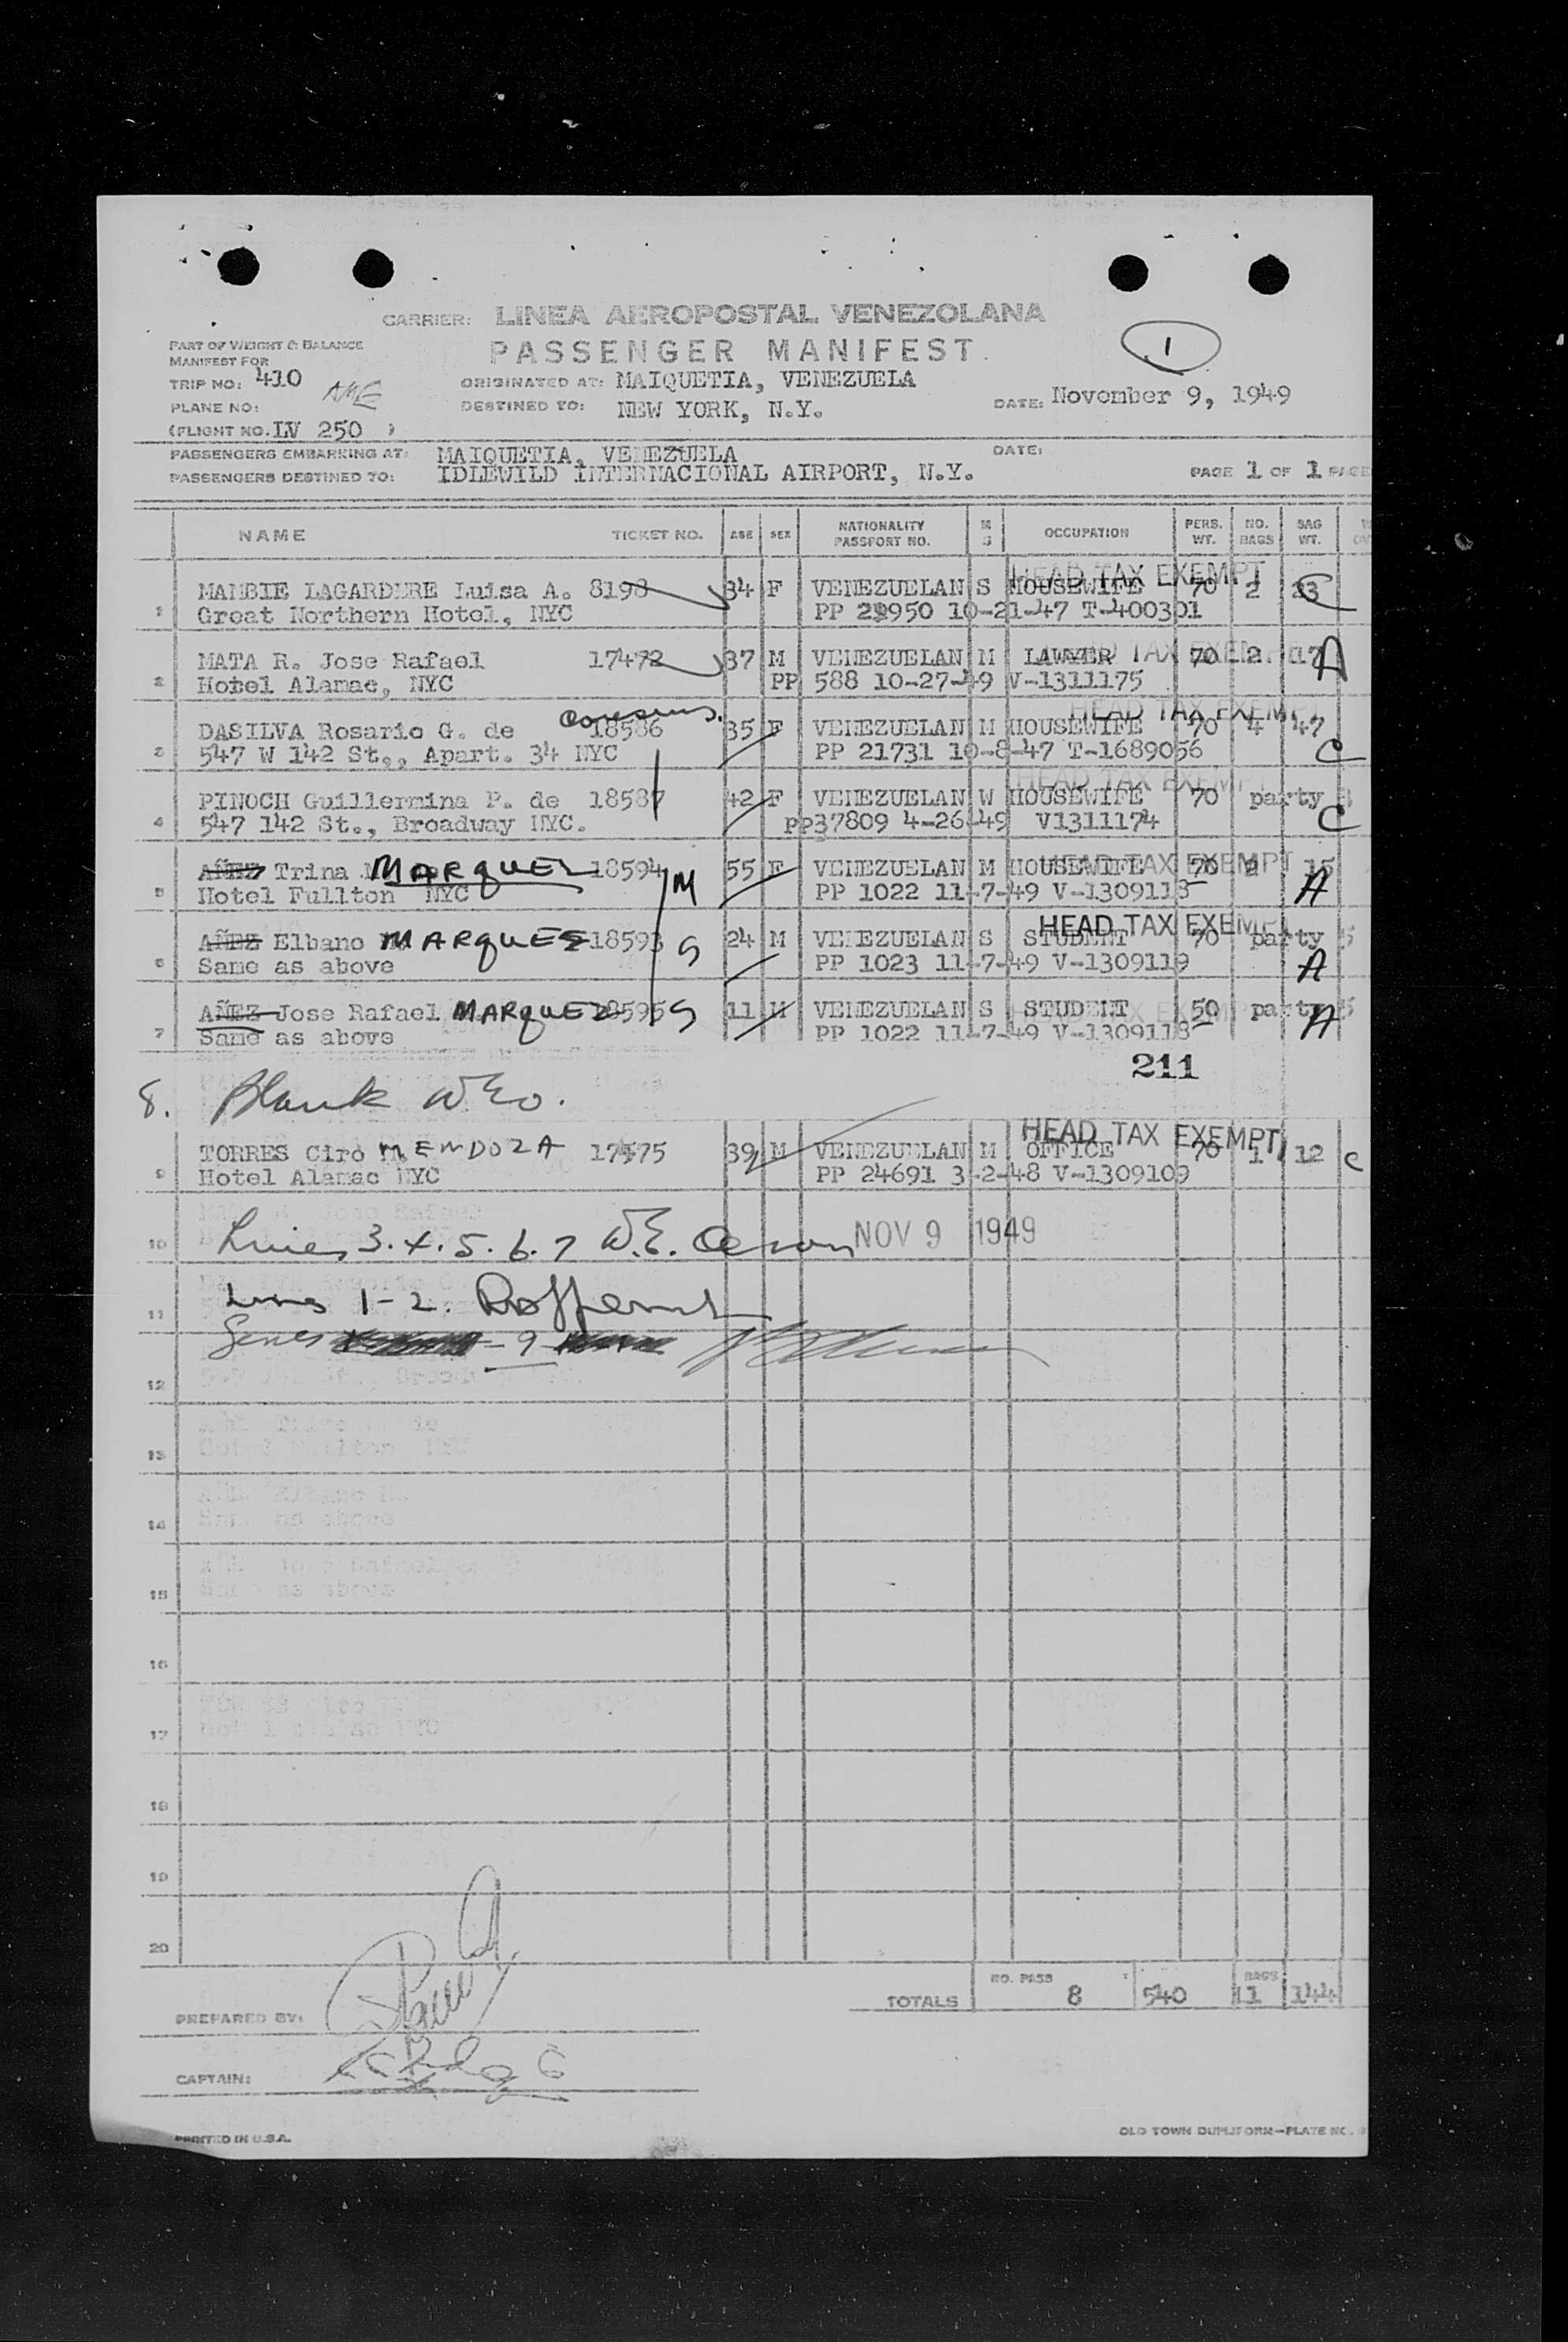 CARRIER: LINEA AEROPOSTAL VENEZOLANA
PASSENGER MANIFEST
1
PART OF WEIGHT & BALANCE
MANIFEST FOR
TRIP NO: 410
ORIGINATED AT: MAIQUETIA, VENEZUELA
PLANE NO:
DESTINED TO: NEW YORK, N.Y.
DATE: November 9, 1949
(FLIGHT NO. LV 250 )
PASSENGERS EMBARKING AT: MAIQUETIA, VENEZUELA DATE:
PASSENGERS DESTINED TO: IDLEWILD INTERNACIONAL AIRPORT, N.Y. PAGE 1 OF 1 PAGE
NAME TICKET NO. AGE SEX NATIONALITY PASSPORT NO. M S OCCUPATION PERS. WT. NO. BAGS BAG WT.
HEAD TAX EXEMPT
MAMBIE LAGARDERE Luisa A. 8198 34 F VENEZUELAN S HOUSEWIFE 70 2 23 C
1 Great Northern Hotel, NYC PP 28950 10-21-47 T-400301
HEAD TAX EXEMPT
MATA R. Jose Rafael 17472 37 M VENEZUELAN M LAWYER 70 2 17 A
2 Hotel Alamac, NYC PP 588 10-27-49 V-1311175
HEAD TAX EXEMPT
DASILVA Rosario G. de 18586 35 F VENEZUELAN M HOUSEWIFE 70 4 47
3 547 W 142 St,, Apart. 34 NYC PP 21731 10-8-47 T-1689056 C
HEAD TAX EXEMPT
PINOCH Guillermina P. de 18587 42 F VENEZUELAN W HOUSEWIFE 70 party
4 547 142 St., Broadway NYC. PP37809 4-26-49 V1311174 C
HEAD TAX EXEMPT
AÑEZ Trina MARQUEZ 18594 M 55 F VENEZUELAN M HOUSEWIFE 70 2 15
5 Hotel Fullton NYC PP 1022 11-7-49 V-1309118 A
HEAD TAX EXEMPT
AÑEZ Elbano MARQUEZ 18593 S 24 M VENEZUELAN S STUDENT 70 party
6 Same as above PP 1023 11-7-49 V-1309119 A
AÑEZ Jose Rafael MARQUEZ 18595 S 11 M VENEZUELAN S STUDENT 50 party A
7 Same as above PP 1022 11-7-49 V-1309118
211
8. Blank WEO.
HEAD TAX EXEMPT
TORRES Ciro MENDOZA 17575 39 M VENEZUELAN M OFFICE 70 1 12 C
9 Hotel Alamac NYC PP 24691 3-2-48 V-1309109
10 Lines 3.4.5.6.7 W.E. NOV 9 1949
11 Lines 1-2.
9
12
13
14
15
16
17
18
19
20
TOTALS NO. PASS 8 540 BAGS 11 144
PREPARED BY:
CAPTAIN:
PRINTED IN U.S.A. OLD TOWN DUPLIFORM-PLATE NO.